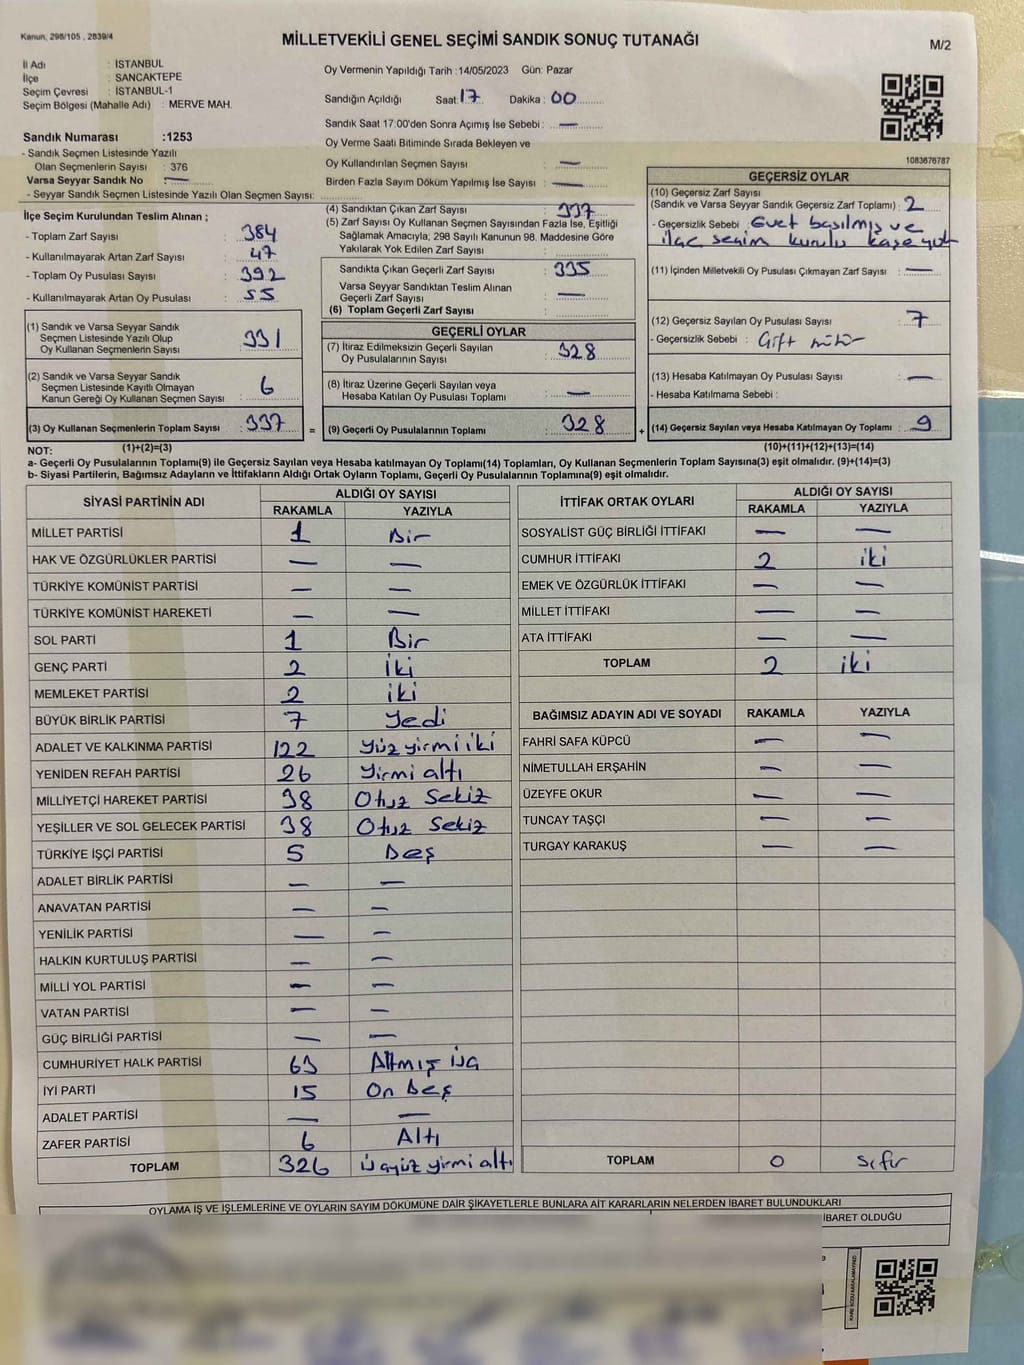 Kanun, 298/105 , 2839/4
MİLLETVEKİLİ GENEL SEÇİMİ SANDIK SONUÇ TUTANAĞI
M/2
İl Adı : İSTANBUL
İlçe : SANCAKTEPE
Seçim Çevresi : İSTANBUL-1
Seçim Bölgesi (Mahalle Adı) : MERVE MAH.
Sandık Numarası :1253
- Sandık Seçmen Listesinde Yazılı
Olan Seçmenlerin Sayısı : 376
Varsa Seyyar Sandık No : —
- Seyyar Sandık Seçmen Listesinde Yazılı Olan Seçmen Sayısı:
Oy Vermenin Yapıldığı Tarih :14/05/2023 Gün: Pazar
Sandığın Açıldığı Saat:17 Dakika : 00
Sandık Saat 17:00'den Sonra Açımış İse Sebebi : —
Oy Verme Saati Bitiminde Sırada Bekleyen ve
Oy Kullandırılan Seçmen Sayısı : —
Birden Fazla Sayım Döküm Yapılmış İse Sayısı : —
1083676787
İlçe Seçim Kurulundan Teslim Alınan ;
- Toplam Zarf Sayısı : 384
- Kullanılmayarak Artan Zarf Sayısı : 47
- Toplam Oy Pusulası Sayısı : 392
- Kullanılmayarak Artan Oy Pusulası : 55
(1) Sandık ve Varsa Seyyar Sandık
Seçmen Listesinde Yazılı Olup
Oy Kullanan Seçmenlerin Sayısı : 331
(2) Sandık ve Varsa Seyyar Sandık
Seçmen Listesinde Kayıtlı Olmayan
Kanun Gereği Oy Kullanan Seçmen Sayısı : 6
(3) Oy Kullanan Seçmenlerin Toplam Sayısı : 337 =
(4) Sandıktan Çıkan Zarf Sayısı : 337
(5) Zarf Sayısı Oy Kullanan Seçmen Sayısından Fazla İse, Eşitliği
Sağlamak Amacıyla; 298 Sayılı Kanunun 98. Maddesine Göre
Yakılarak Yok Edilen Zarf Sayısı :
Sandıkta Çıkan Geçerli Zarf Sayısı : 335
Varsa Seyyar Sandıktan Teslim Alınan
Geçerli Zarf Sayısı : —
(6) Toplam Geçerli Zarf Sayısı :
GEÇERLİ OYLAR
(7) İtiraz Edilmeksizin Geçerli Sayılan
Oy Pusulalarının Sayısı : 328
(8) İtiraz Üzerine Geçerli Sayılan veya
Hesaba Katılan Oy Pusulası Toplamı : —
(9) Geçerli Oy Pusulalarının Toplamı : 328 +
GEÇERSİZ OYLAR
(10) Geçersiz Zarf Sayısı
(Sandık ve Varsa Seyyar Sandık Geçersiz Zarf Toplamı) : 2
- Geçersizlik Sebebi : Evet basılmış ve
ilçe seçim kurulu kaşe yok
(11) İçinden Milletvekili Oy Pusulası Çıkmayan Zarf Sayısı : —
(12) Geçersiz Sayılan Oy Pusulası Sayısı : 7
- Geçersizlik Sebebi : Çift mühür
(13) Hesaba Katılmayan Oy Pusulası Sayısı : —
- Hesaba Katılmama Sebebi :
(14) Geçersiz Sayılan veya Hesaba Katılmayan Oy Toplamı : 9
NOT: (1)+(2)=(3) (10)+(11)+(12)+(13)=(14)
a- Geçerli Oy Pusulalarının Toplamı(9) ile Geçersiz Sayılan veya Hesaba katılmayan Oy Toplamı(14) Toplamları, Oy Kullanan Seçmenlerin Toplam Sayısına(3) eşit olmalıdır. (9)+(14)=(3)
b- Siyasi Partilerin, Bağımsız Adayların ve İttifakların Aldığı Ortak Oyların Toplamı, Geçerli Oy Pusulalarının Toplamına(9) eşit olmalıdır.
SİYASİ PARTİNİN ADI ALDIĞI OY SAYISI
RAKAMLA YAZIYLA
MİLLET PARTİSİ 1 Bir
HAK VE ÖZGÜRLÜKLER PARTİSİ — —
TÜRKİYE KOMÜNİST PARTİSİ — —
TÜRKİYE KOMÜNİST HAREKETİ — —
SOL PARTİ 1 Bir
GENÇ PARTİ 2 iki
MEMLEKET PARTİSİ 2 iki
BÜYÜK BİRLİK PARTİSİ 7 Yedi
ADALET VE KALKINMA PARTİSİ 122 Yüz yirmi iki
YENİDEN REFAH PARTİSİ 26 Yirmi altı
MİLLİYETÇİ HAREKET PARTİSİ 38 Otuz Sekiz
YEŞİLLER VE SOL GELECEK PARTİSİ 38 Otuz Sekiz
TÜRKİYE İŞÇİ PARTİSİ 5 Beş
ADALET BİRLİK PARTİSİ — —
ANAVATAN PARTİSİ — —
YENİLİK PARTİSİ — —
HALKIN KURTULUŞ PARTİSİ — —
MİLLİ YOL PARTİSİ — —
VATAN PARTİSİ — —
GÜÇ BİRLİĞİ PARTİSİ — —
CUMHURİYET HALK PARTİSİ 63 Altmış üç
İYİ PARTİ 15 On Beş
ADALET PARTİSİ — —
ZAFER PARTİSİ 6 Altı
TOPLAM 326 üçyüz yirmi altı
İTTİFAK ORTAK OYLARI ALDIĞI OY SAYISI
RAKAMLA YAZIYLA
SOSYALİST GÜÇ BİRLİĞİ İTTİFAKI — —
CUMHUR İTTİFAKI 2 iki
EMEK VE ÖZGÜRLÜK İTTİFAKI — —
MİLLET İTTİFAKI — —
ATA İTTİFAKI — —
TOPLAM 2 iki
BAĞIMSIZ ADAYIN ADI VE SOYADI RAKAMLA YAZIYLA
FAHRİ SAFA KÜPCÜ — —
NİMETULLAH ERŞAHİN — —
ÜZEYFE OKUR — —
TUNCAY TAŞÇI — —
TURGAY KARAKUŞ — —
TOPLAM 0 Sıfır
OYLAMA İŞ VE İŞLEMLERİNE VE OYLARIN SAYIM DÖKÜMÜNE DAİR ŞİKAYETLERLE BUNLARA AİT KARARLARIN NELERDEN İBARET BULUNDUKLARI
İBARET OLDUĞU